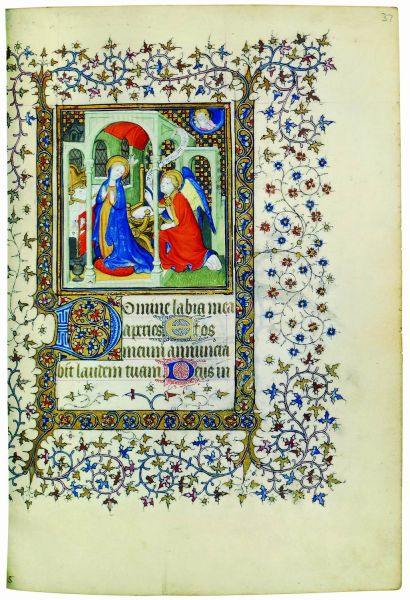 37
Domine labia mea
aperies Et os
meum annuncia
bit laudem tuam Deus in
5